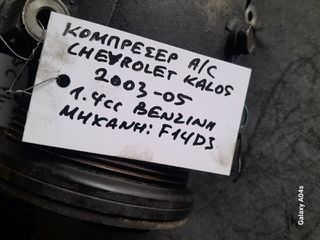 ΚΟΜΠΡΕΣΕΡ A/C
CHEVROLET KALOS
2003-05
1.4cc BENZINH
ΜΗΧΑΝΗ: F14D3
Galaxy A04s